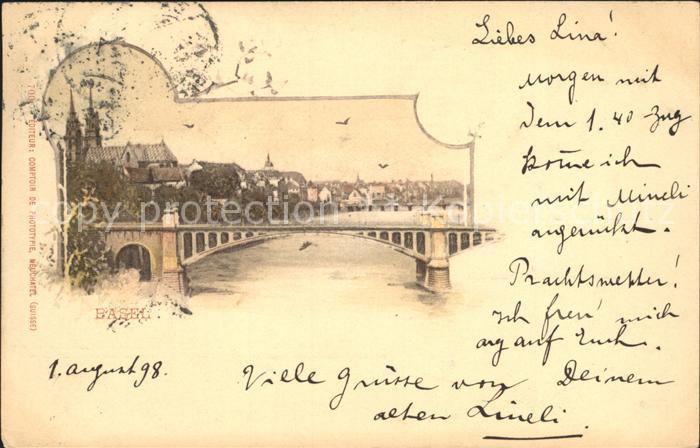 Liebes Lina!
Morgen mit
dem 1.40 Zug
komme ich
mit Mineli
angerückt.
Prachtswetter!
Ich freu' mich
arg auf Euch.
Viele Grüsse von Deinem
alten Lineli.
1. August 98.
BASEL
ÉDITEUR: COMPTOIR DE PHOTOTYPIE, NEUCHATEL (SUISSE)
copy protection by Samlerparadies